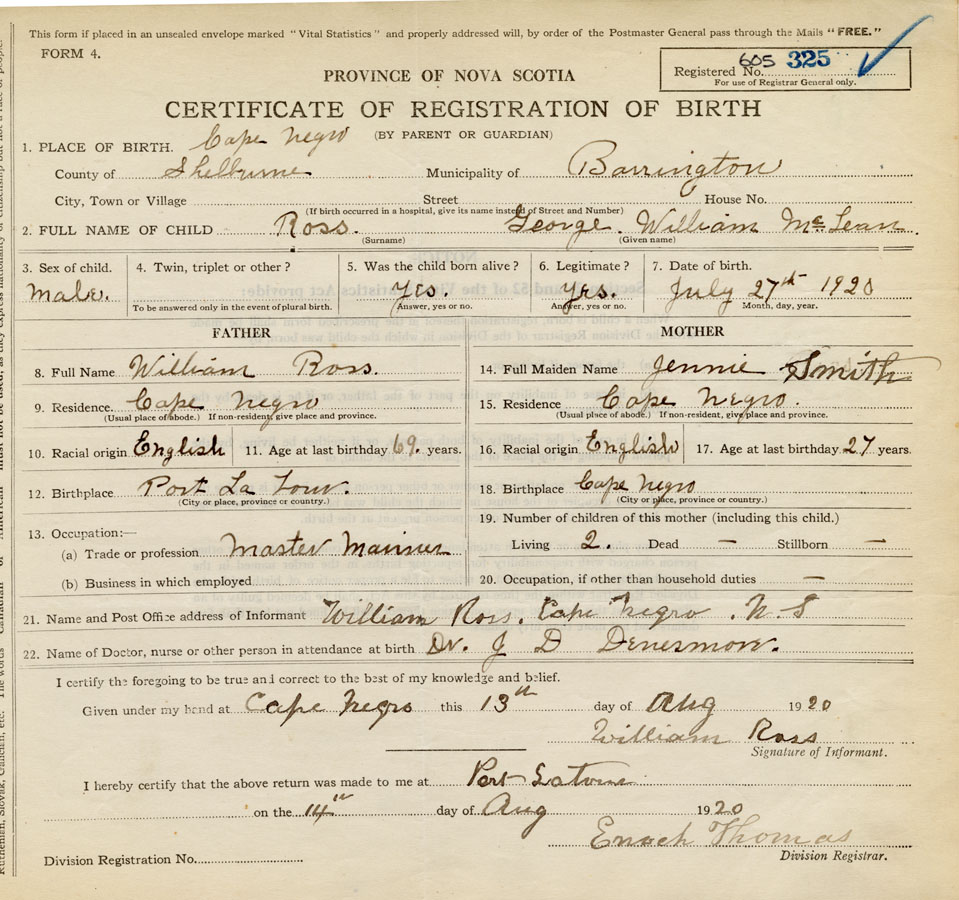 This form if placed in an unsealed envelope marked "Vital Statistics" and properly addressed will, by order of the Postmaster General pass through the Mails "FREE."
FORM 4.
Registered No. 605 325
For use of Registrar General only.
PROVINCE OF NOVA SCOTIA
CERTIFICATE OF REGISTRATION OF BIRTH
(BY PARENT OR GUARDIAN)
1. PLACE OF BIRTH. Cape Negro
County of Shelburne Municipality of Barrington
City, Town or Village Street House No.
(If birth occurred in a hospital, give its name instead of Street and Number)
2. FULL NAME OF CHILD Ross. George William McLean
(Surname) (Given name)
3. Sex of child. 4. Twin, triplet or other? 5. Was the child born alive? 6. Legitimate? 7. Date of birth.
Male. Yes. Yes. July 27th 1920
To be answered only in the event of plural birth. Answer, yes or no. Answer, yes or no. Month, day, year.
FATHER MOTHER
8. Full Name William Ross. 14. Full Maiden Name Jennie Smith
9. Residence. Cape Negro 15. Residence Cape Negro.
(Usual place of abode.) If non-resident, give place and province. (Usual place of abode.) If non-resident, give place and province.
10. Racial origin English 11. Age at last birthday 69. years. 16. Racial origin English 17. Age at last birthday 27 years.
12. Birthplace Port La Tour. 18. Birthplace Cape Negro
(City or place, province or country.) (City or place, province or country.)
13. Occupation:— 19. Number of children of this mother (including this child.)
(a) Trade or profession Master Mariner Living 2. Dead — Stillborn —
(b) Business in which employed 20. Occupation, if other than household duties —
21. Name and Post Office address of Informant William Ross. Cape Negro. N-S
22. Name of Doctor, nurse or other person in attendance at birth Dr. J D Densmore.
I certify the foregoing to be true and correct to the best of my knowledge and belief.
Given under my hand at Cape Negro this 13th day of Aug 1920
William Ross
Signature of Informant.
I hereby certify that the above return was made to me at Port Latour
on the 14th day of Aug 1920
Enoch Thomas
Division Registration No. Division Registrar.